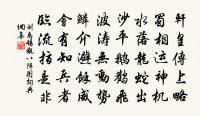 軒皇傳上略
蜀相運神機
水落龍蛇出
沙平鵝鸛飛
波濤無動勢
鱗介避餘威
會有知兵者
臨流指是非
劉禹錫觀八陣圖詞典
網集